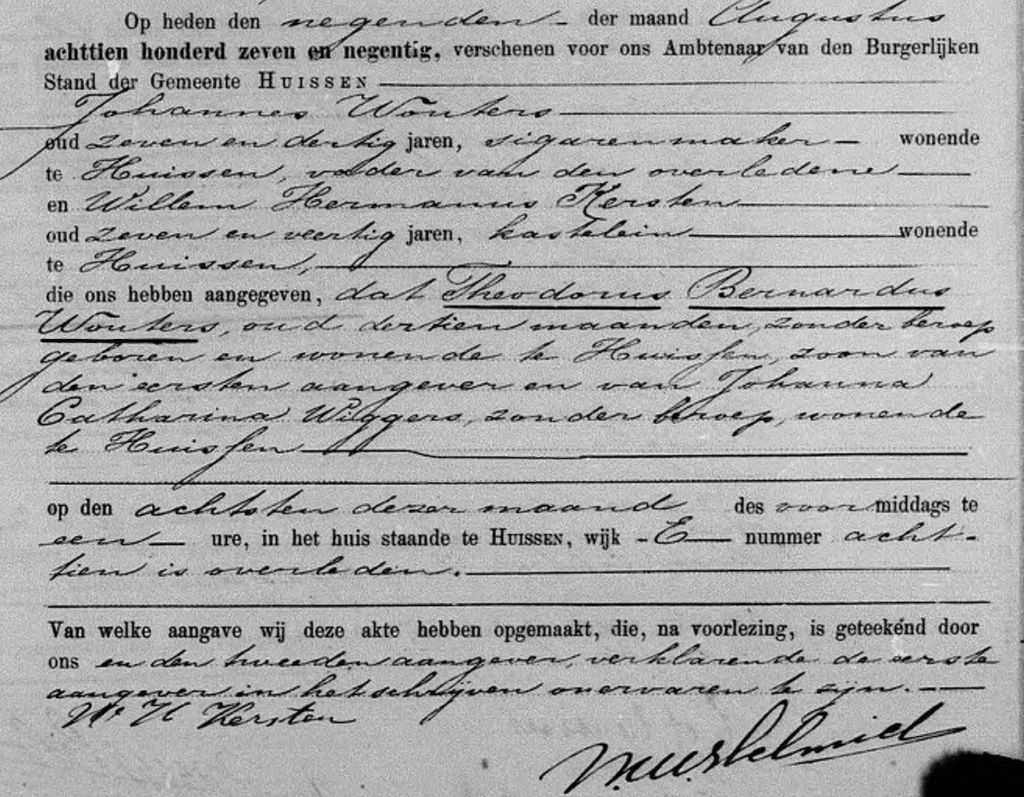 Op heden den negenden der maand Augustus
achttien honderd zeven en negentig, verschenen voor ons Ambtenaar van den Burgerlijken
Stand der Gemeente HUISSEN
Johannes Wouters
oud zeven en dertig jaren, sigarenmaker wonende
te Huissen, vader van den overledene
en Willem Hermanus Kersten
oud zeven en veertig jaren, kastelein wonende
te Huissen,
die ons hebben aangegeven, dat Theodorus Bernardus
Wouters, oud dertien maanden, zonder beroep
geboren en wonende te Huissen, zoon van
den eersten aangever en van Johanna
Catharina Wiggers, zonder beroep, wonende
te Huissen
op den achtsten dezer maand des voormiddags te
een ure, in het huis staande te HUISSEN, wijk - E nummer acht-
tien is overleden.
Van welke aangave wij deze akte hebben opgemaakt, die, na voorlezing, is geteekend door
ons en den tweeden aangever, verklarende de eerste
aangever in het schrijven onervaren te zijn.
W. H Kersten